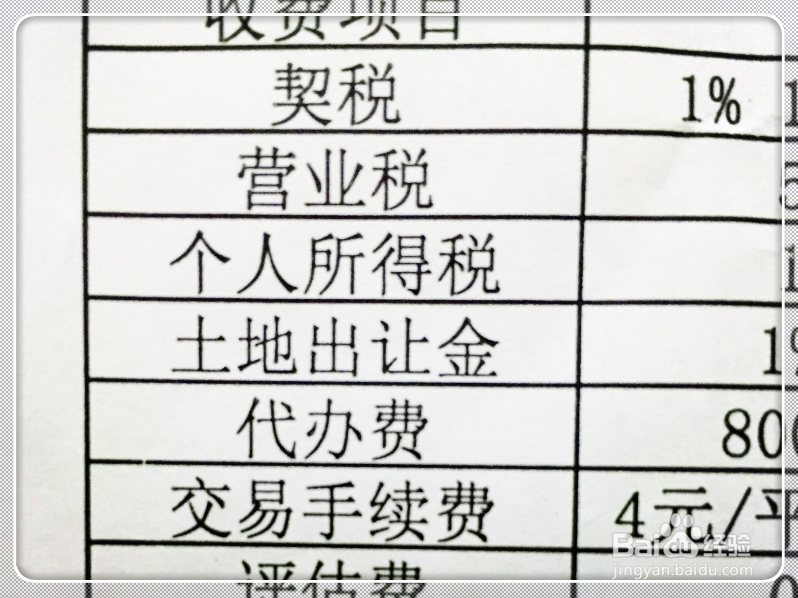 收费项目
契税 1% 1
营业税 5
个人所得税 1
土地出让金 1%
代办费 800
交易手续费 4元/平
评估费 0
Baidu 经验
jingyan.baidu.com